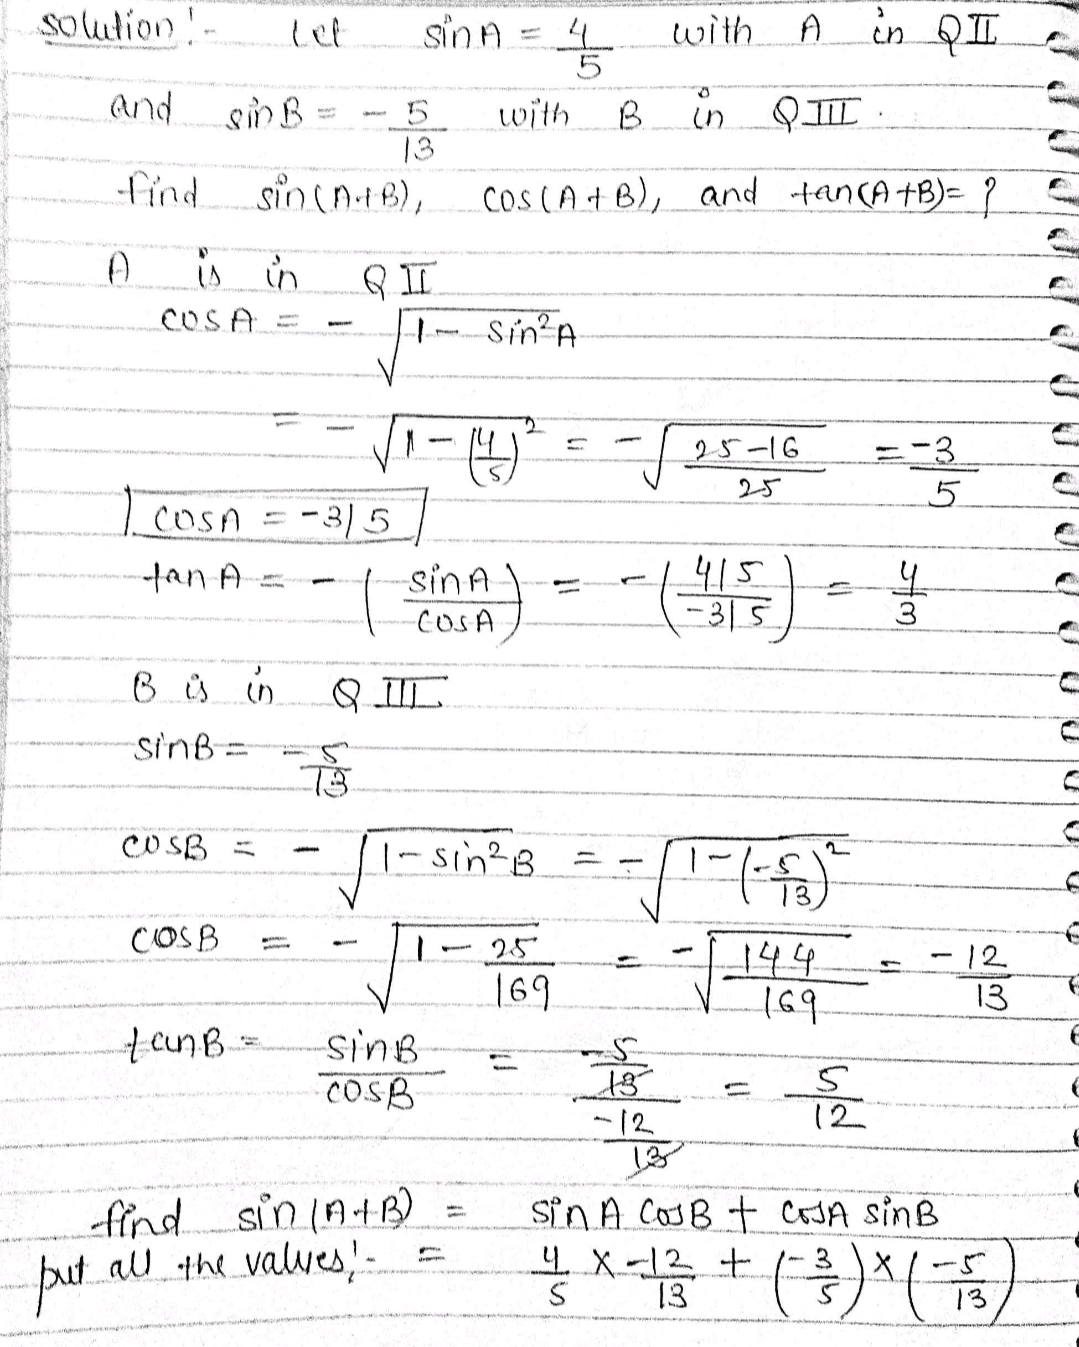 solution:- Let sin A = 4/5 with A in QII
and sin B = -5/13 with B in QIII.
find sin(A+B), cos(A+B), and tan(A+B)= ?
A is in QII
cos A = - √(1 - sin²A)
= - √(1 - (4/5)²) = - √((25-16)/25) = -3/5
cos A = -3/5
tan A = - (sin A/cos A) = - ((4/5)/(-3/5)) = 4/3
B is in QIII
sin B = -5/13
cos B = - √(1 - sin²B) = - √(1 - (-5/13)²)
cos B = - √(1 - 25/169) = - √(144/169) = -12/13
tan B = sin B/cos B = (-5/13)/(-12/13) = 5/12
find sin(A+B) = sin A cos B + cos A sin B
put all the values:- = 4/5 × -12/13 + (-3/5) × (-5/13)